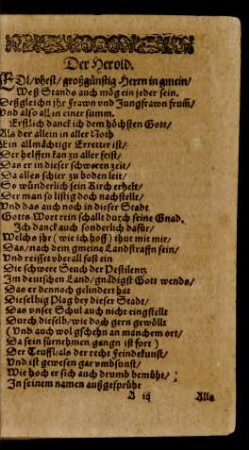 Der Herold.
EDl/vhest/großgünstig Herrn in gmein/
Weß Stands auch mög ein jeder sein.
Deßgleichn jhr Frawn vnd Jungfrawn frum/
Vnd also all in einer summ.
Erstlich danck ich dem höchsten Gott/
Als der allein in aller Noth
Ein allmächtige Erretter ist/
Der helffen kan zu aller frist/
Das er in dieser schweren zeit/
Da alles schier zu boden leit/
So wünderlich sein Kirch erhelt/
Der man so listig doch nachstelle/
Vnd das auch noch in dieser Stadt
Gotts Wort rein schallt durch seine Gnad.
Ich danck auch sonderlich dafür/
Welchs jhr (wie ich hoff) thut mit mir/
Das/nach dem gmeine Landstraffn sein/
Vnd reisset vberall fast ein
Die schwere Seuch der Pestilentz
Im deutschen Land/gnädigst Gott wends/
Das er dennoch gelindert hat
Dieselbig Plag bey dieser Stadt/
Das vnser Schul auch nicht eingstellt
Durch dieselb/wie doch gern gewöllt
(Vnd auch wol gschehn an manchem ort/
Da sein fürnehmen gangn ist fort)
Der Teuffl/als der recht Feindekunst/
Vnd ist gewesen gar vmbsunst/
Wie hoch er sich auch drumb bemüht/
In seinem namen außgesprühe
A iij Alle